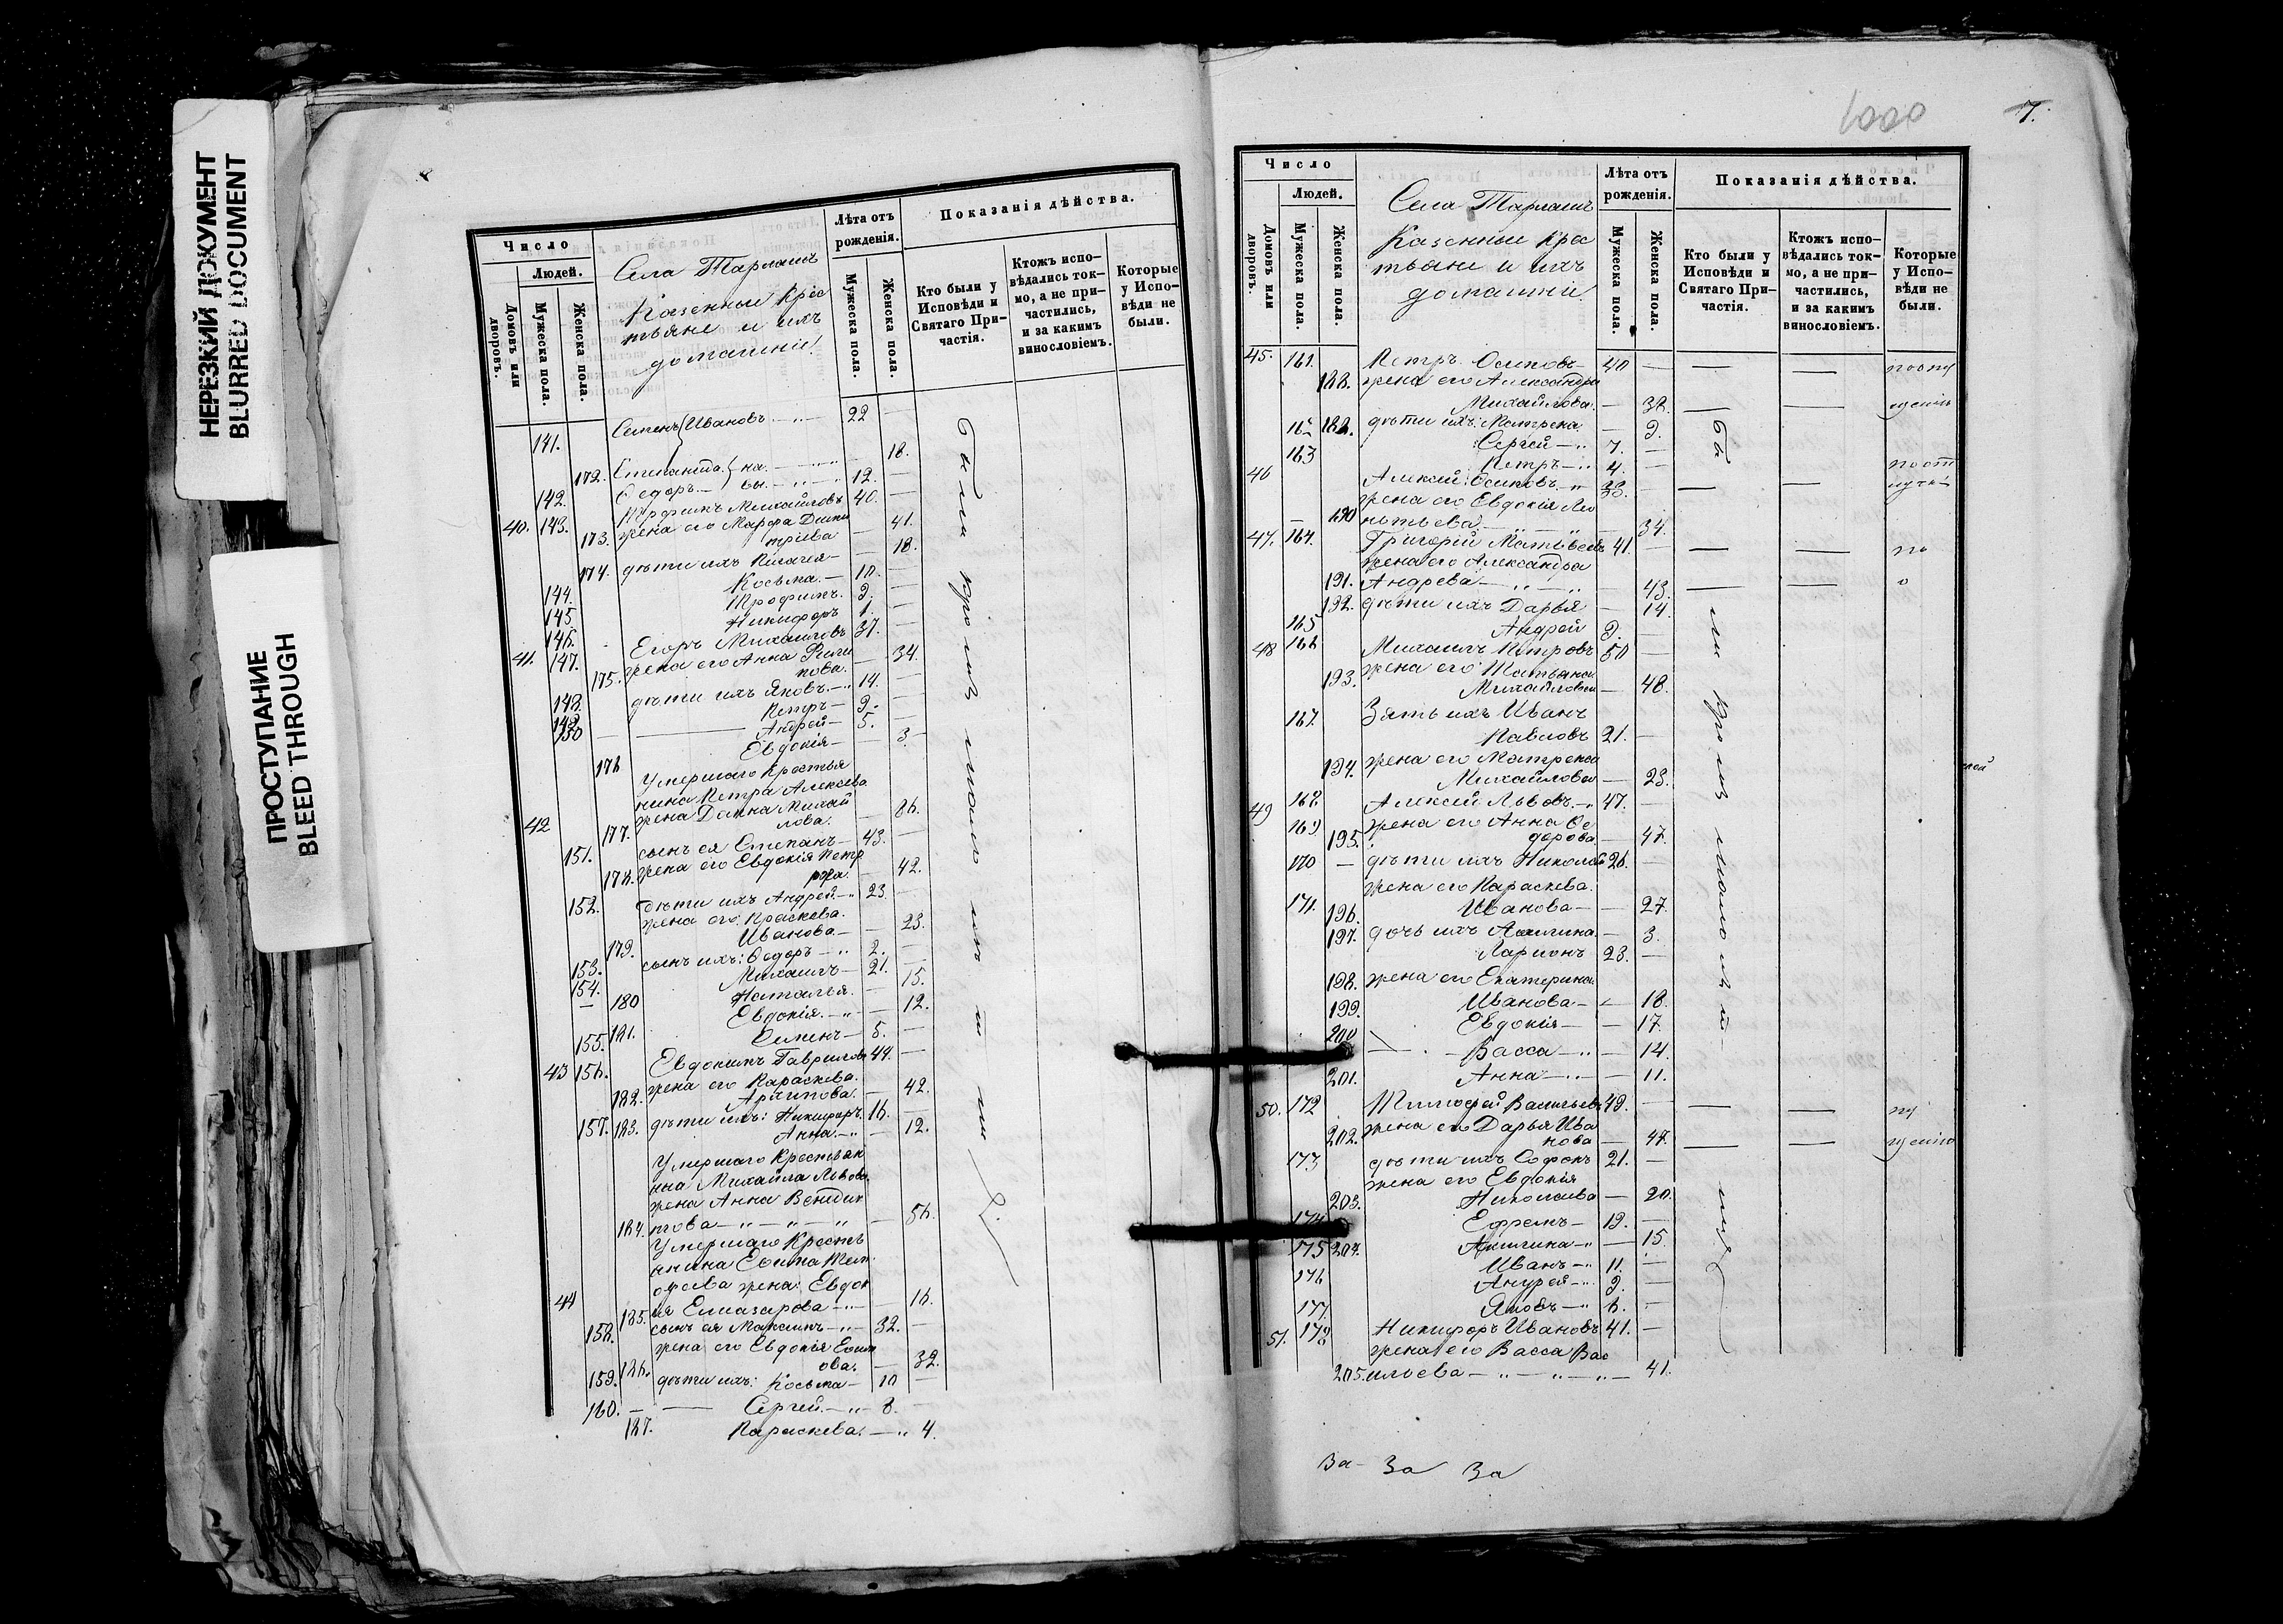 НЕРЕЗКИЙ ДОКУМЕНТ
BLURRED DOCUMENT
ПРОСТУПАНИЕ
BLEED THROUGH
Число
Людей.
Домовъ или дворовъ.
Мужеска пола.
Женска пола.
Села Тарлаши
Казенныи крес
тьяне и ихъ
домашніи
Лѣта отъ рожденія.
Мужеска пола.
Женска пола.
Показанія дѣйства.
Кто были у Исповѣди и Святаго Причастія.
Ктожъ исповѣдались токмо, а не причастились, и за какимъ винословіемъ.
Которые у Исповѣди не были.
141. Семенъ Ивановъ 22
172. Степанида на 18.
142. Ѳедоръ вы 12.
40. 143. Михайловъ 40.
173. жена его Марфа Дими
тріева 41.
174. дѣти ихъ Пелагея 18.
144. Косьма 10.
145 Трофимъ 9.
146. Никифоръ 1.
41. 147. Егоръ Михаиловъ 37.
175. жена его Анна Фили
пова. 34.
148. дѣти ихъ Яковъ 14.
149 Петръ 9.
150 Андрей 5.
176 Евдокія 3.
Умершаго крестья
нина Петра Алексѣева
42 177. жена Домна Михай
лова. 86.
151. сынъ ея Степанъ 43.
178. жена его Евдокія Петр
42.
152. дѣти ихъ Андрей 23.
жена его Праскева.
179. Иванова 23.
153. сынъ ихъ: Ѳедоръ 2.
154. Михаилъ 21.
180 Наталья. 15.
181. Евдокія. 12.
155. Семенъ 5.
43 156. Евдокимъ Гаврилов 44.
жена его Параскева.
182. Архипова. 42.
157. 183. дѣти ихъ: Никифоръ. 16.
Анна. 12.
Умершаго Крестьян
ина Михайла Львова
жена Анна Венедик
184. това 56.
Умершаго Крестья
нина
жена: Евдок
44 185. ія Елиазарова 16.
158. сынъ ея Максимъ 32.
жена его Евдокія
186. ова. 32.
159. дѣти ихъ: Косьма 10
160. Сергей 8.
187. Параскева. 4.
были кромѣ малолѣтнихъ
1000
7.
Число
Людей.
Домовъ или дворовъ.
Мужеска пола.
Женска пола.
Села Тарлаши
Казенныи крес
тьяне и ихъ
домашніи.
Лѣта отъ рожденія.
Мужеска пола.
Женска пола.
Показанія дѣйства.
Кто были у Исповѣди и Святаго Причастія.
Ктожъ исповѣдались токмо, а не причастились, и за какимъ винословіемъ.
Которые у Исповѣди не были.
45. 161. Петръ Осиповъ 40
188. жена его Александра
Михайлова. 38.
дѣти ихъ: Матрена 9.
Сергей 7.
163 Петръ 4.
46 Алексѣй Осиповъ 38.
190 жена его Евдокія Лео
нтьева 34.
47. 164. Григорій Матвѣевъ 41.
жена его Александра
191. Андрева 43.
192. дѣти ихъ Дарья 14.
165 Андрей 9.
48 166 Михаилъ Петровъ 50
193. жена его Татьяна
Михайлова 48.
167. Зять ихъ Иванъ
Павловъ 21.
194. жена его Матрена
Михайлова 23.
49 168 Алексѣй Львовъ 47.
169 195. жена его Анна Ѳе
дорова 47.
170 дѣти ихъ Николай 26.
жена его Параскева.
171. 196. Иванова 27.
197. дочь ихъ 3.
Ларионъ 23.
198. жена его Екатерина
199. Иванова 18.
200 Евдокія 17.
Васса 14.
201. Анна 11.
50. 172 Тимофей Васильевъ 49.
202. жена его Дарья Ива
нова 47.
173 дѣти ихъ Софонъ 21.
жена его Евдокія
203. Николаева 20.
174 Ефремъ 19.
175 204. Акилина 15.
176 Иванъ 11.
Андрей 9.
177. Яковъ 6.
51. 178 Никифоръ Ивановъ 41.
жена его Васса Вас
205. ильева 41.
бы ли кромѣ малолѣт
За За За